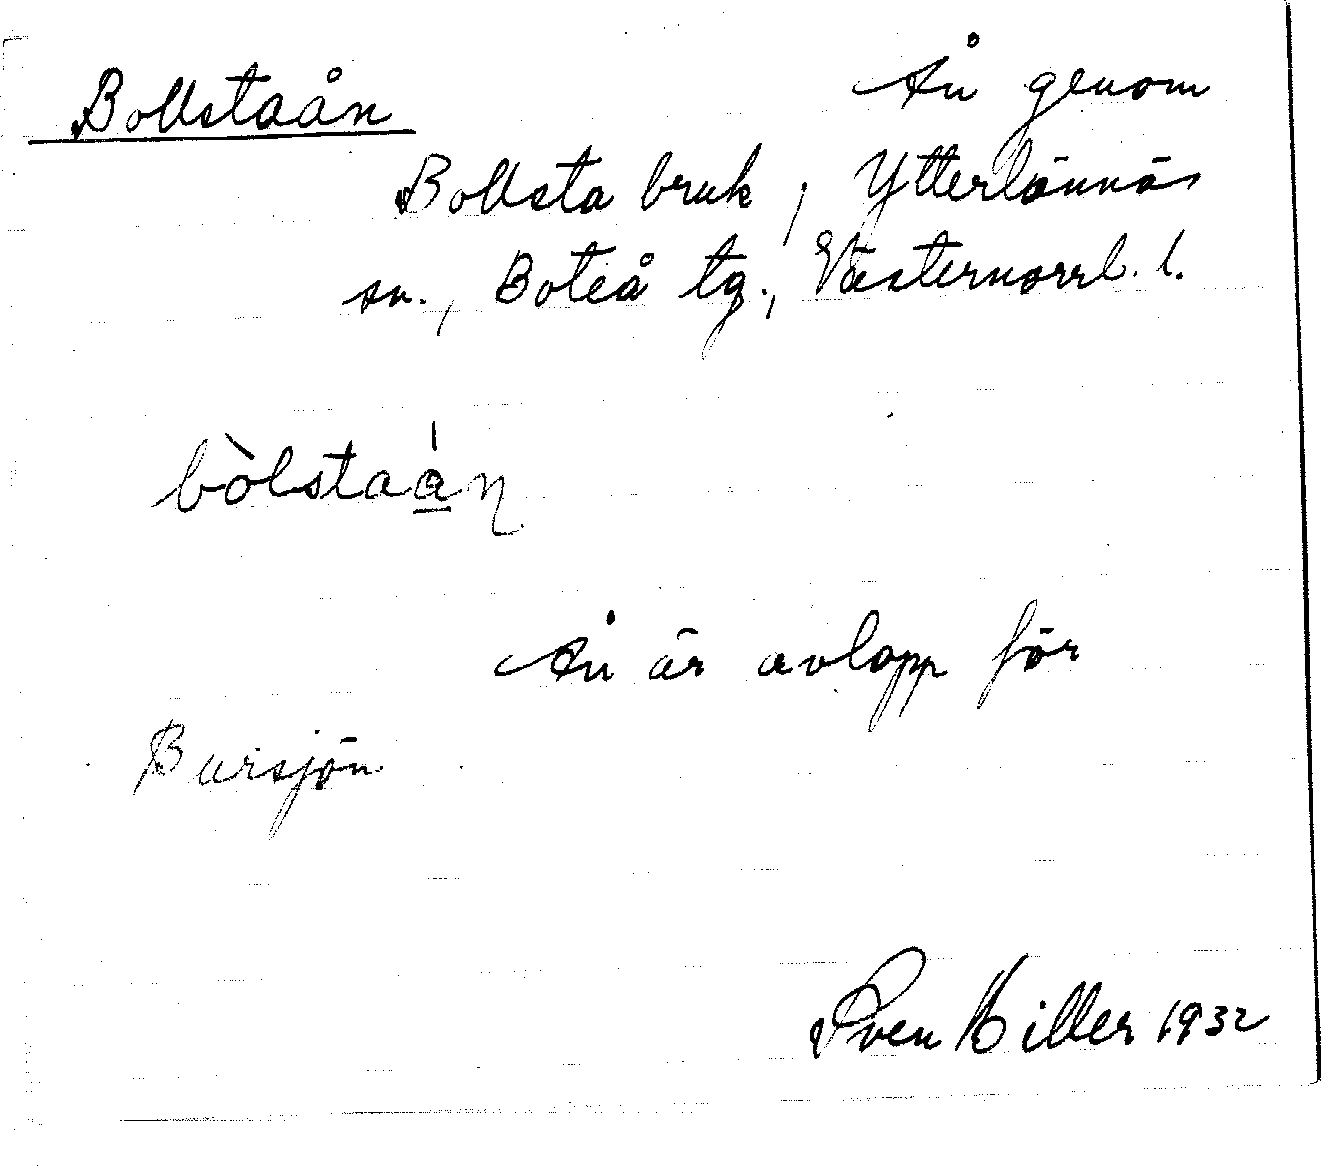 Bollstaån
Å genom
Bollsta bruk, Ytterlännäs
sn., Boteå tg., Västernorrl. l.
bòlstaá̲n
Ån är avlopp för
Bursjön
Sven Hiller 1932